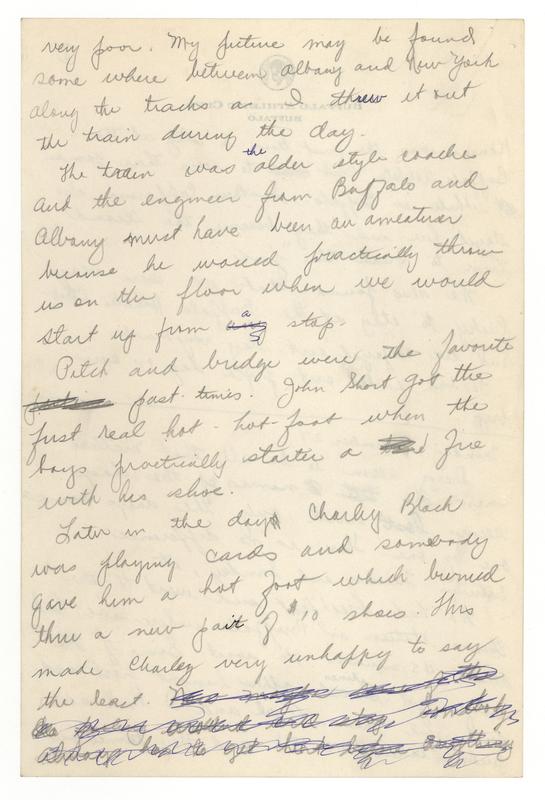 very poor. My picture may be found
some where between albany and New York
along the tracks as I threw it out
the train during the day.
The train was the older style coache
and the engineer from Buffalo and
Albany must have been an ameatuer
because he would practically throw
us on the floor when we would
start up from a stop.
Pitch and bridge were the favorite
past-times. John Short got the
first real hot-hot-foot when the
boys practically starter a fire
with his shoe.
Later in the day Charley Black
was playing cards and somebody
gave him a hot foot which burned
thru a new pair of $10 shoes. This
made Charley very unhappy to say
the least.